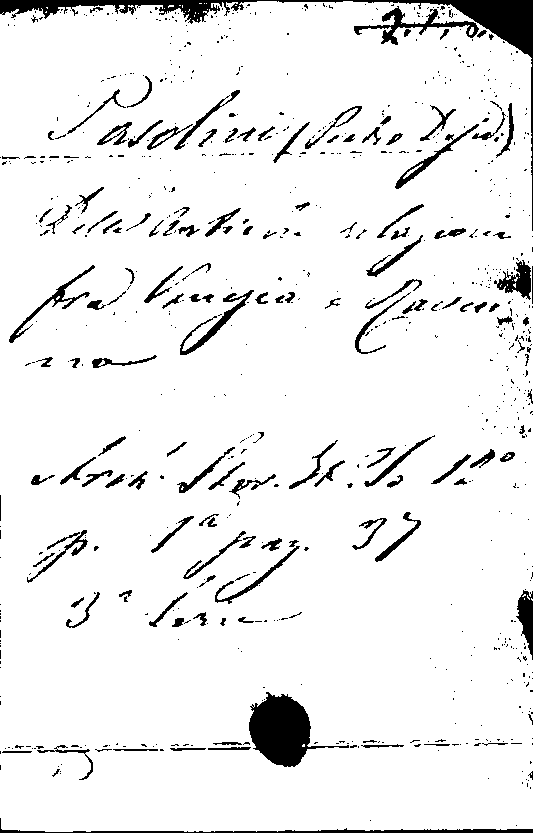 Pasolini (Pietro Desid.)
Delle Antiche relazioni
fra Venezia e Raven-
na
Arch. Stor. It. To 12°
p. 1ª pag. 37
3ª Serie